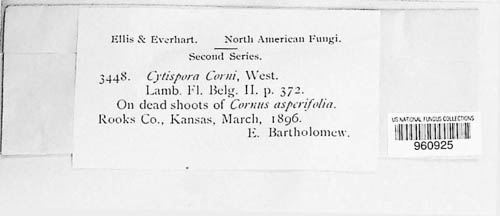 Ellis & Everhart. North American Fungi.
Second Series.
3448. Cytispora Corni, West.
Lamb. Fl. Belg. II. p. 372.
On dead shoots of Cornus asperifolia.
Rooks Co., Kansas, March, 1896.
E. Bartholomew.
US NATIONAL FUNGUS COLLECTIONS
960925